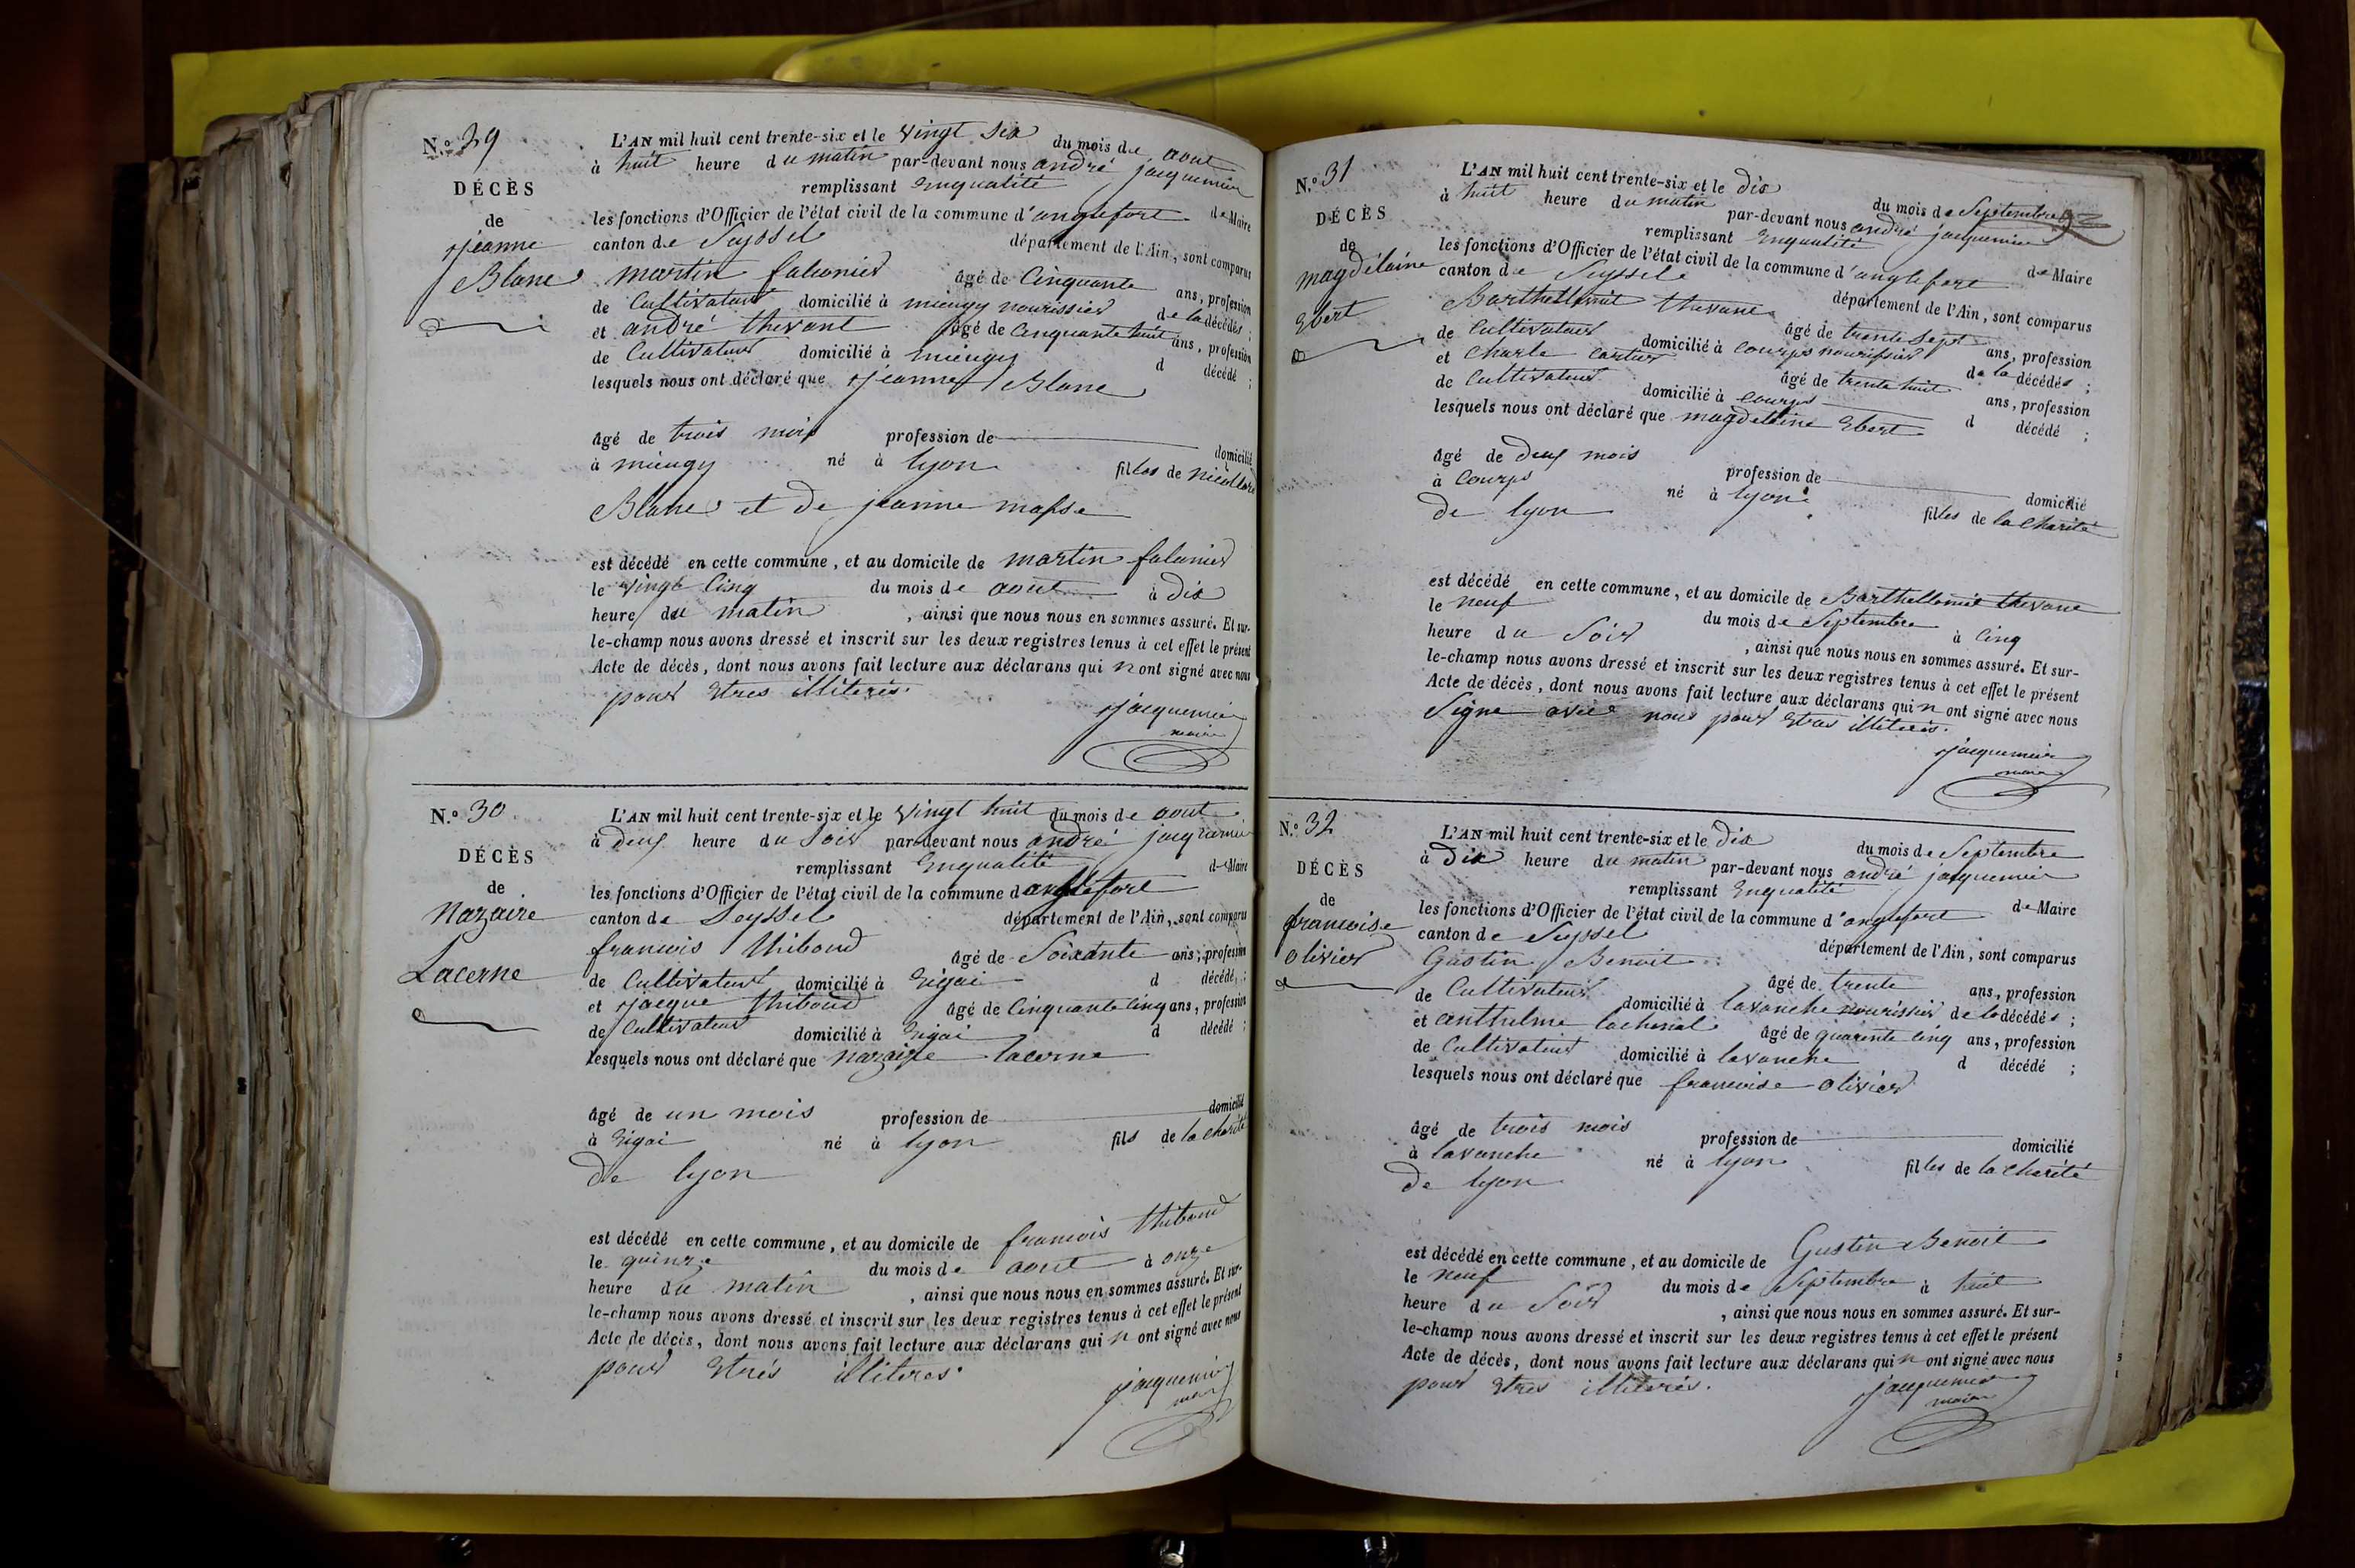 N.º 29
DÉCÈS
de
jeanne
Blanc
L'AN mil huit cent trente-six et le vingt six du mois de aout
à huit heure du matin par-devant nous andré jacquemier
remplissant Enqualité de Maire
les fonctions d'Officier de l'état civil de la commune d'anglefort
canton de Seyssel département de l'Ain, sont comparus
martin falconier âgé de Cinquante ans, profession
de Cultivateur domicilié à mieugy nourissier de la décédée ;
et andré thevant âgé de Cinquante huit ans, profession
de Cultivateur domicilié à mieugy d décédé ;
lesquels nous ont déclaré que jeanne Blanc
âgé de trois mois profession de domicilié
à mieugy né à lyon filles de
Blanc et de jeanne masse
est décédé en cette commune, et au domicile de martin falconier
le vingt Cinq du mois de aout à dix
heure du matin , ainsi que nous nous en sommes assuré. Et sur-
le-champ nous avons dressé et inscrit sur les deux registres tenus à cet effet le présent
Acte de décès, dont nous avons fait lecture aux déclarans qui n ont signé avec nous
pour Etres illiterés.
jacquemier
maire
N.º 30
DÉCÈS
de
Nazaire
Lacerne
L'AN mil huit cent trente-six et le vingt huit du mois de aout
à deux heure du Soir par-devant nous andré jacquemier
remplissant Enqualité de Maire
les fonctions d'Officier de l'état civil de la commune d anglefort
canton de Seyssel département de l'Ain, sont comparus
francois thiboud âgé de Soixante ans, profession
de Cultivateur domicilié à Eigai d décédé ;
et jacque thiboud âgé de Cinquante Cinq ans, profession
de Cultivateur domicilié à Eigai d décédé ;
lesquels nous ont déclaré que nazaire lacerne
âgé de un mois profession de domicilié
à Eigai né à lyon fils de la charité
de lyon
est décédé en cette commune, et au domicile de francois thiboud
le quinze du mois de aout à onze
heure du matin , ainsi que nous nous en sommes assuré. Et sur-
le-champ nous avons dressé et inscrit sur les deux registres tenus à cet effet le présent
Acte de décès, dont nous avons fait lecture aux déclarans qui n ont signé avec nous
pour Etrés illiteres.
jacquemier
maire
N.º 31
DÉCÈS
de
magdélaine
Ebert
L'AN mil huit cent trente-six et le dix du mois de Septembre
à huit heure du matin par-devant nous andré jacquemier
remplissant Enqualité de Maire
les fonctions d'Officier de l'état civil de la commune d'anglefort
canton de Seyssel département de l'Ain, sont comparus
Barthellemié thevane âgé de trente Sept ans, profession
de Cultivateur domicilié à Courps nourissier de la décédée ;
et Charle cartier âgé de trente huit ans, profession
de Cultivateur domicilié à Courps d décédé ;
lesquels nous ont déclaré que magdelaine Ebert
âgé de deux mois profession de domicilié
à Courps né à lyon filles de la Charité
de lyon
est décédé en cette commune, et au domicile de Barthellemié thevane
le neuf du mois de Septembre à Cinq
heure du Soir , ainsi que nous nous en sommes assuré. Et sur-
le-champ nous avons dressé et inscrit sur les deux registres tenus à cet effet le présent
Acte de décès, dont nous avons fait lecture aux déclarans qui n ont signé avec nous
Signe avec nous pour Etres illiterés.
jacquemier
maire
N.º 32
DÉCÈS
de
francoise
olivier
L'AN mil huit cent trente-six et le dix du mois de Septembre
à Dix heure du matin par-devant nous andré jacquemier
remplissant Enqualité de Maire
les fonctions d'Officier de l'état civil de la commune d'anglefort
canton de Seyssel département de l'Ain, sont comparus
Gustin Benoit âgé de trente ans, profession
de Cultivateur domicilié à lavanche nourissier de la décédée ;
et anthelme lachenal âgé de quarente cinq ans, profession
de Cultivateur domicilié à lavanche d décédé ;
lesquels nous ont déclaré que francoise olivier
âgé de trois mois profession de domicilié
à lavanche né à lyon filles de la charité
de lyon
est décédé en cette commune, et au domicile de Gustin Benoit
le neuf du mois de Septembre à huit
heure du Soir , ainsi que nous nous en sommes assuré. Et sur-
le-champ nous avons dressé et inscrit sur les deux registres tenus à cet effet le présent
Acte de décès, dont nous avons fait lecture aux déclarans qui n ont signé avec nous
pour Etres illiterés.
jacquemier
maire